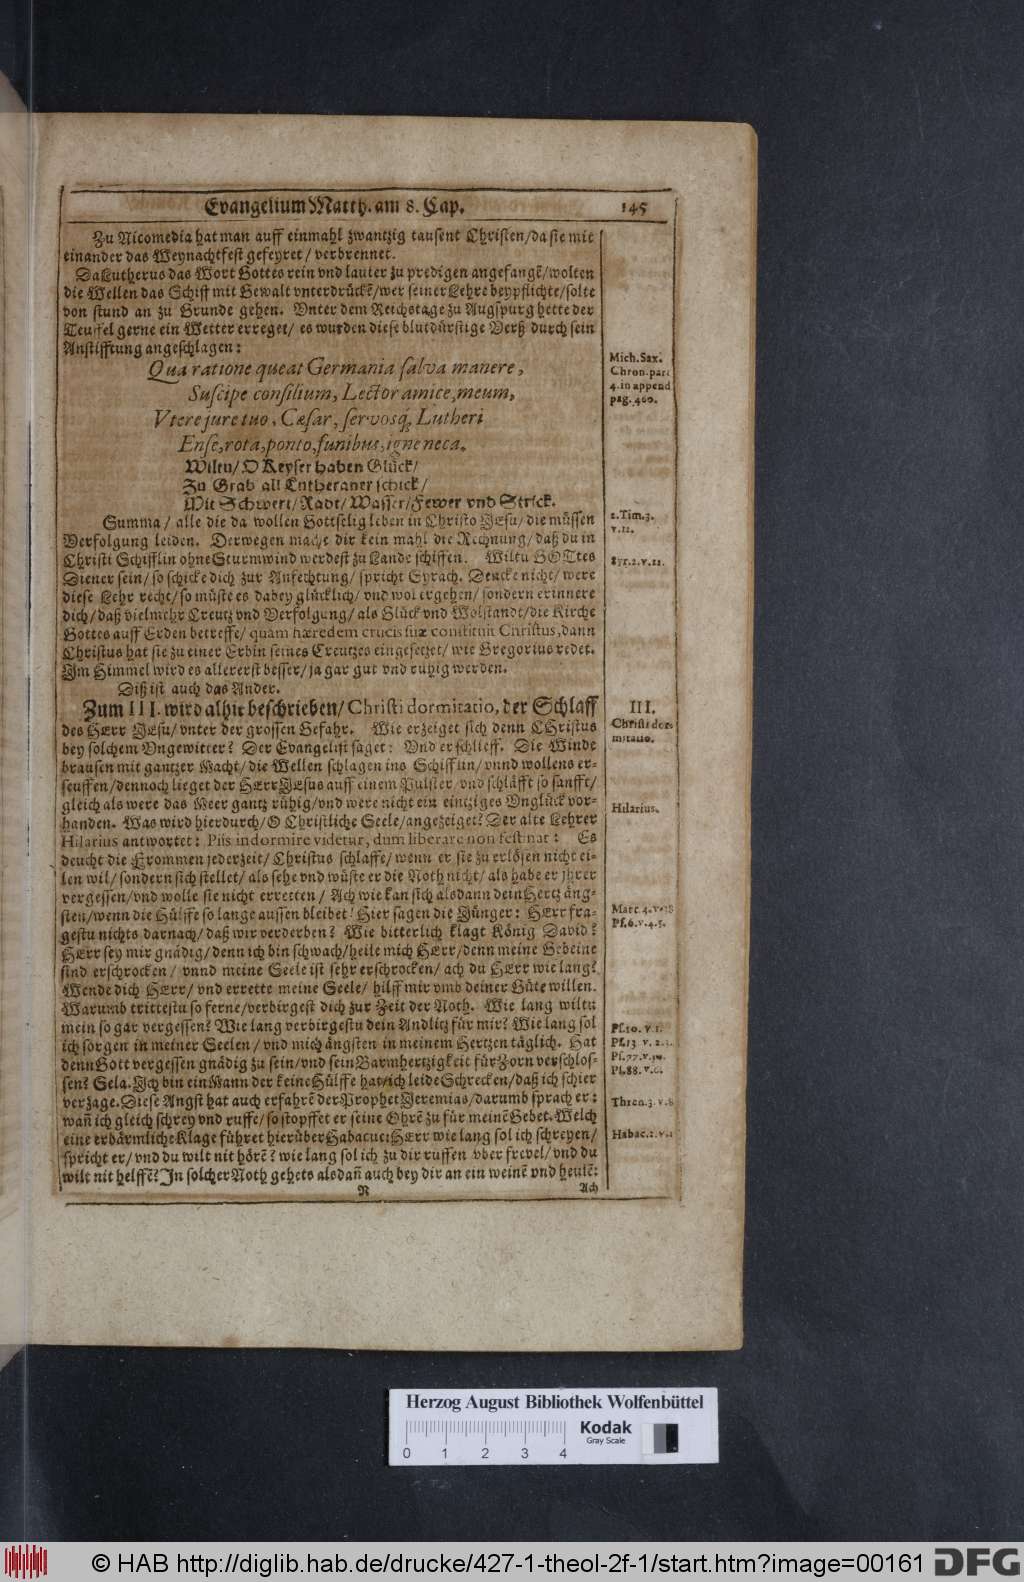 Evangelium Matth. am 8. Cap. 145
Zu Nicomedia hat man auff einmahl zwantzig tausent Christen/ da sie mit
einander das Weynachtfest gefeyret/ verbrennet.
Da Lutherus das Wort Gottes rein vnd lauter zu predigen angefangẽ/ wolten
die Wellen das Schiff mit Gewalt vnterdrückẽ/ wer seiner Lehre beypflichte/ solte
von stund an zu Grunde gehen. Vnter dem Reichstage zu Augspurg hette der
Teuffel gerne ein Wetter erreget/ es wurden diese blutdürstige Verß durch sein
Anstifftung angeschlagen:
Qua ratione queat Germania salva manere,
Suscipe consilium, Lector amice, meum,
Vtere jure tuo, Cæsar, servosq́; Lutheri
Ense, rota, ponto, funibus, igne neca.
Wiltu/ O Keyser haben Glück/
Zu Grab all Lutheraner schick/
Mit Schwert/ Radt/ Wasser/ Fewer vnd Strick.
Summa/ alle die da wollen Gottselig leben in Christo JEsu/ die müssen
Verfolgung leiden. Derwegen mache dir kein mahl die Rechnung/ daß du in
Christi Schifflin ohne Sturmwind werdest zu Lande schiffen. Wiltu GOTtes
Diener sein/ so schicke dich zur Anfechtung/ spricht Syrach. Dencke nicht/ were
diese Lehr recht/ so müste es dabey glücklich/ vnd wol ergehen/ sondern erinnere
dich/ daß vielmehr Creutz vnd Verfolgung/ als Glück vnd Wolstandt/ die Kirche
Gottes auff Erden betreffe/ quam hæredem crucis suæ constituit Christus, dann
Christus hat sie zu einer Erbin seines Creutzes eingesetzet/ wie Gregorius redet.
Im Himmel wird es allererst besser/ ja gar gut vnd ruhig werden.
Diß ist auch das Ander.
Zum III. wird alhie beschrieben/ Christi dormitatio, der Schlaff
des HErr JEsu/ vnter der grossen Gefahr. Wie erzeiget sich denn CHristus
bey solchem Vngewitter? Der Evangelist saget: Vnd er schlieff. Die Winde
brausen mit gantzer Macht/ die Wellen schlagen ins Schifflin/ vnnd wollens er-
seuffen/ dennoch lieget der HErr JEsus auff einem Pulster/ vnd schläfft so sanfft/
gleich als were das Meer gantz rühig/ vnd were nicht ein eintziges Vnglück vor-
handen. Was wird hierdurch/ O Christliche Seele/ angezeiget? Der alte Lehrer
Hilarius antwortet: Piis indormire videtur, dum liberare non festinat: Es
deucht die Frommen jederzeit/ Christus schlaffe/ wenn er sie zu erlösen nicht ei-
len wil/ sondern sich stellet/ als sehe vnd wüste er die Noth nicht/ als habe er jhrer
vergessen/ vnd wolle sie nicht erretten/ Ach wie kan sich alsdann dein Hertz äng-
sten/ wenn die Hülffe so lange aussen bleibet! Hier sagen die Jünger: HErr fra-
gestu nichts darnach/ daß wir verderben? Wie bitterlich klagt König David?
HErr sey mir gnädig/ denn ich bin schwach/ heile mich HErr/ denn meine Gebeine
sind erschrocken/ vnnd meine Seele ist sehr erschrocken/ ach du HErr wie lang?
Wende dich HErr/ vnd errette meine Seele/ hilff mir vmb deiner Güte willen.
Warumb trittestu so ferne/ verbirgest dich zur Zeit der Noth. Wie lang wiltu
mein so gar vergessen? Wie lang verbirgestu dein Andlitz für mir? Wie lang sol
ich sorgen in meiner Seelen/ vnd mich ängsten in meinem Hertzen täglich. Hat
denn Gott vergessen gnädig zu sein/ vnd sein Barmhertzigkeit für Zorn verschlos-
sen? Sela. Ich bin ein Mann der keine Hülffe hat/ ich leide Schrecken/ daß ich schier
verzage. Diese Angst hat auch erfahrẽ der Prophet Jeremias/ darumb sprach er:
wañ ich gleich schrey vnd ruffe/ so stopffet er seine Ohrẽ zu für meinẽ Gebet. Welch
eine erbärmliche Klage führet hierüber Habacuc: HErr wie lang sol ich schreyen/
spricht er/ vnd du wilt nit hörẽ? wie lang sol ich zu dir ruffen vber frevel/ vnd du
wilt nit helffẽ? In solcher Noth gehets alsdañ auch bey dir an ein weinẽ vnd heulẽ:
N Ach
Mich. Sax.
Chron. part
4. in append
pag. 460.
2. Tim. 3.
v. 12.
Syr. 2. v. 11.
III.
Christi dor-
mitatio.
Hilarius.
Marc. 4. v. 38
Ps. 6. v. 4. 5.
Ps. 10. v. 1.
Ps. 13. v. 2. 3.
Ps. 77. v. 10.
Ps. 88. v. 6.
Thren. 3. v. 8
Habac. 1. v. 2
Herzog August Bibliothek Wolfenbüttel
0 1 2 3 4
Kodak
Gray Scale
© HAB http://diglib.hab.de/drucke/427-1-theol-2f-1/start.htm?image=00161
DFG